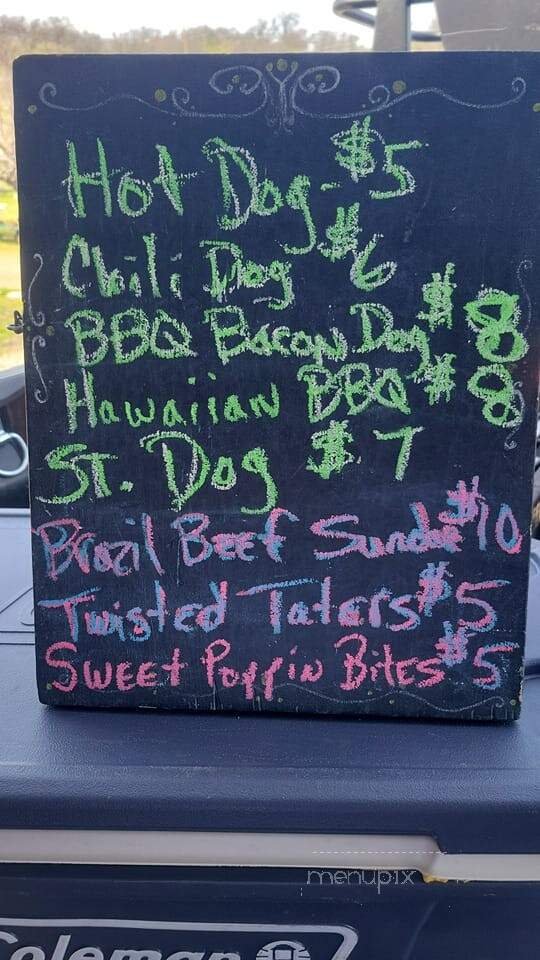 Hot Dog $5
Chili Dog $6
BBQ Bacon Dog $8
Hawaiian BBQ $8
St. Dog $7
Brazil Beef Sundae $10
Twisted Taters $5
Sweet Poppin Bites $5
menupix
Coleman